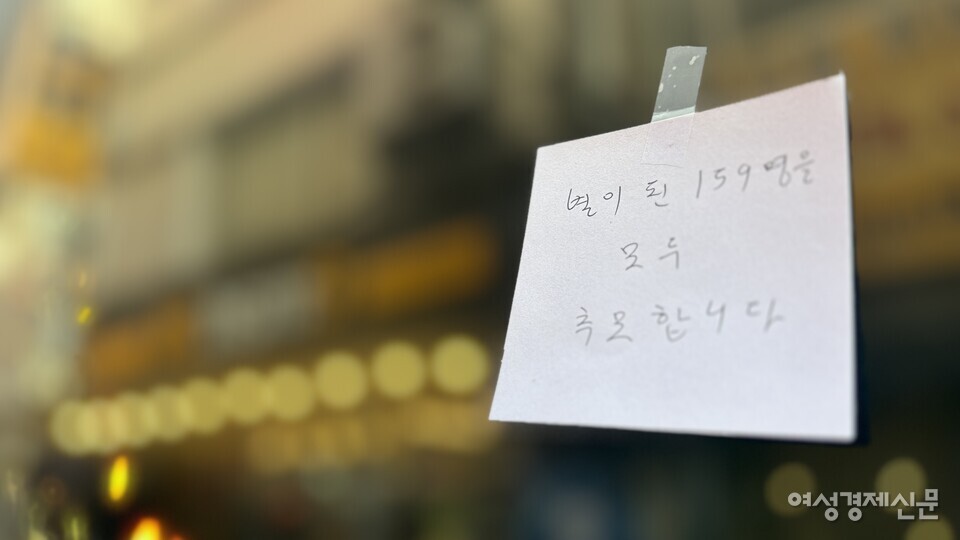 별이 된 159명을
모두
추모합니다
여성경제신문